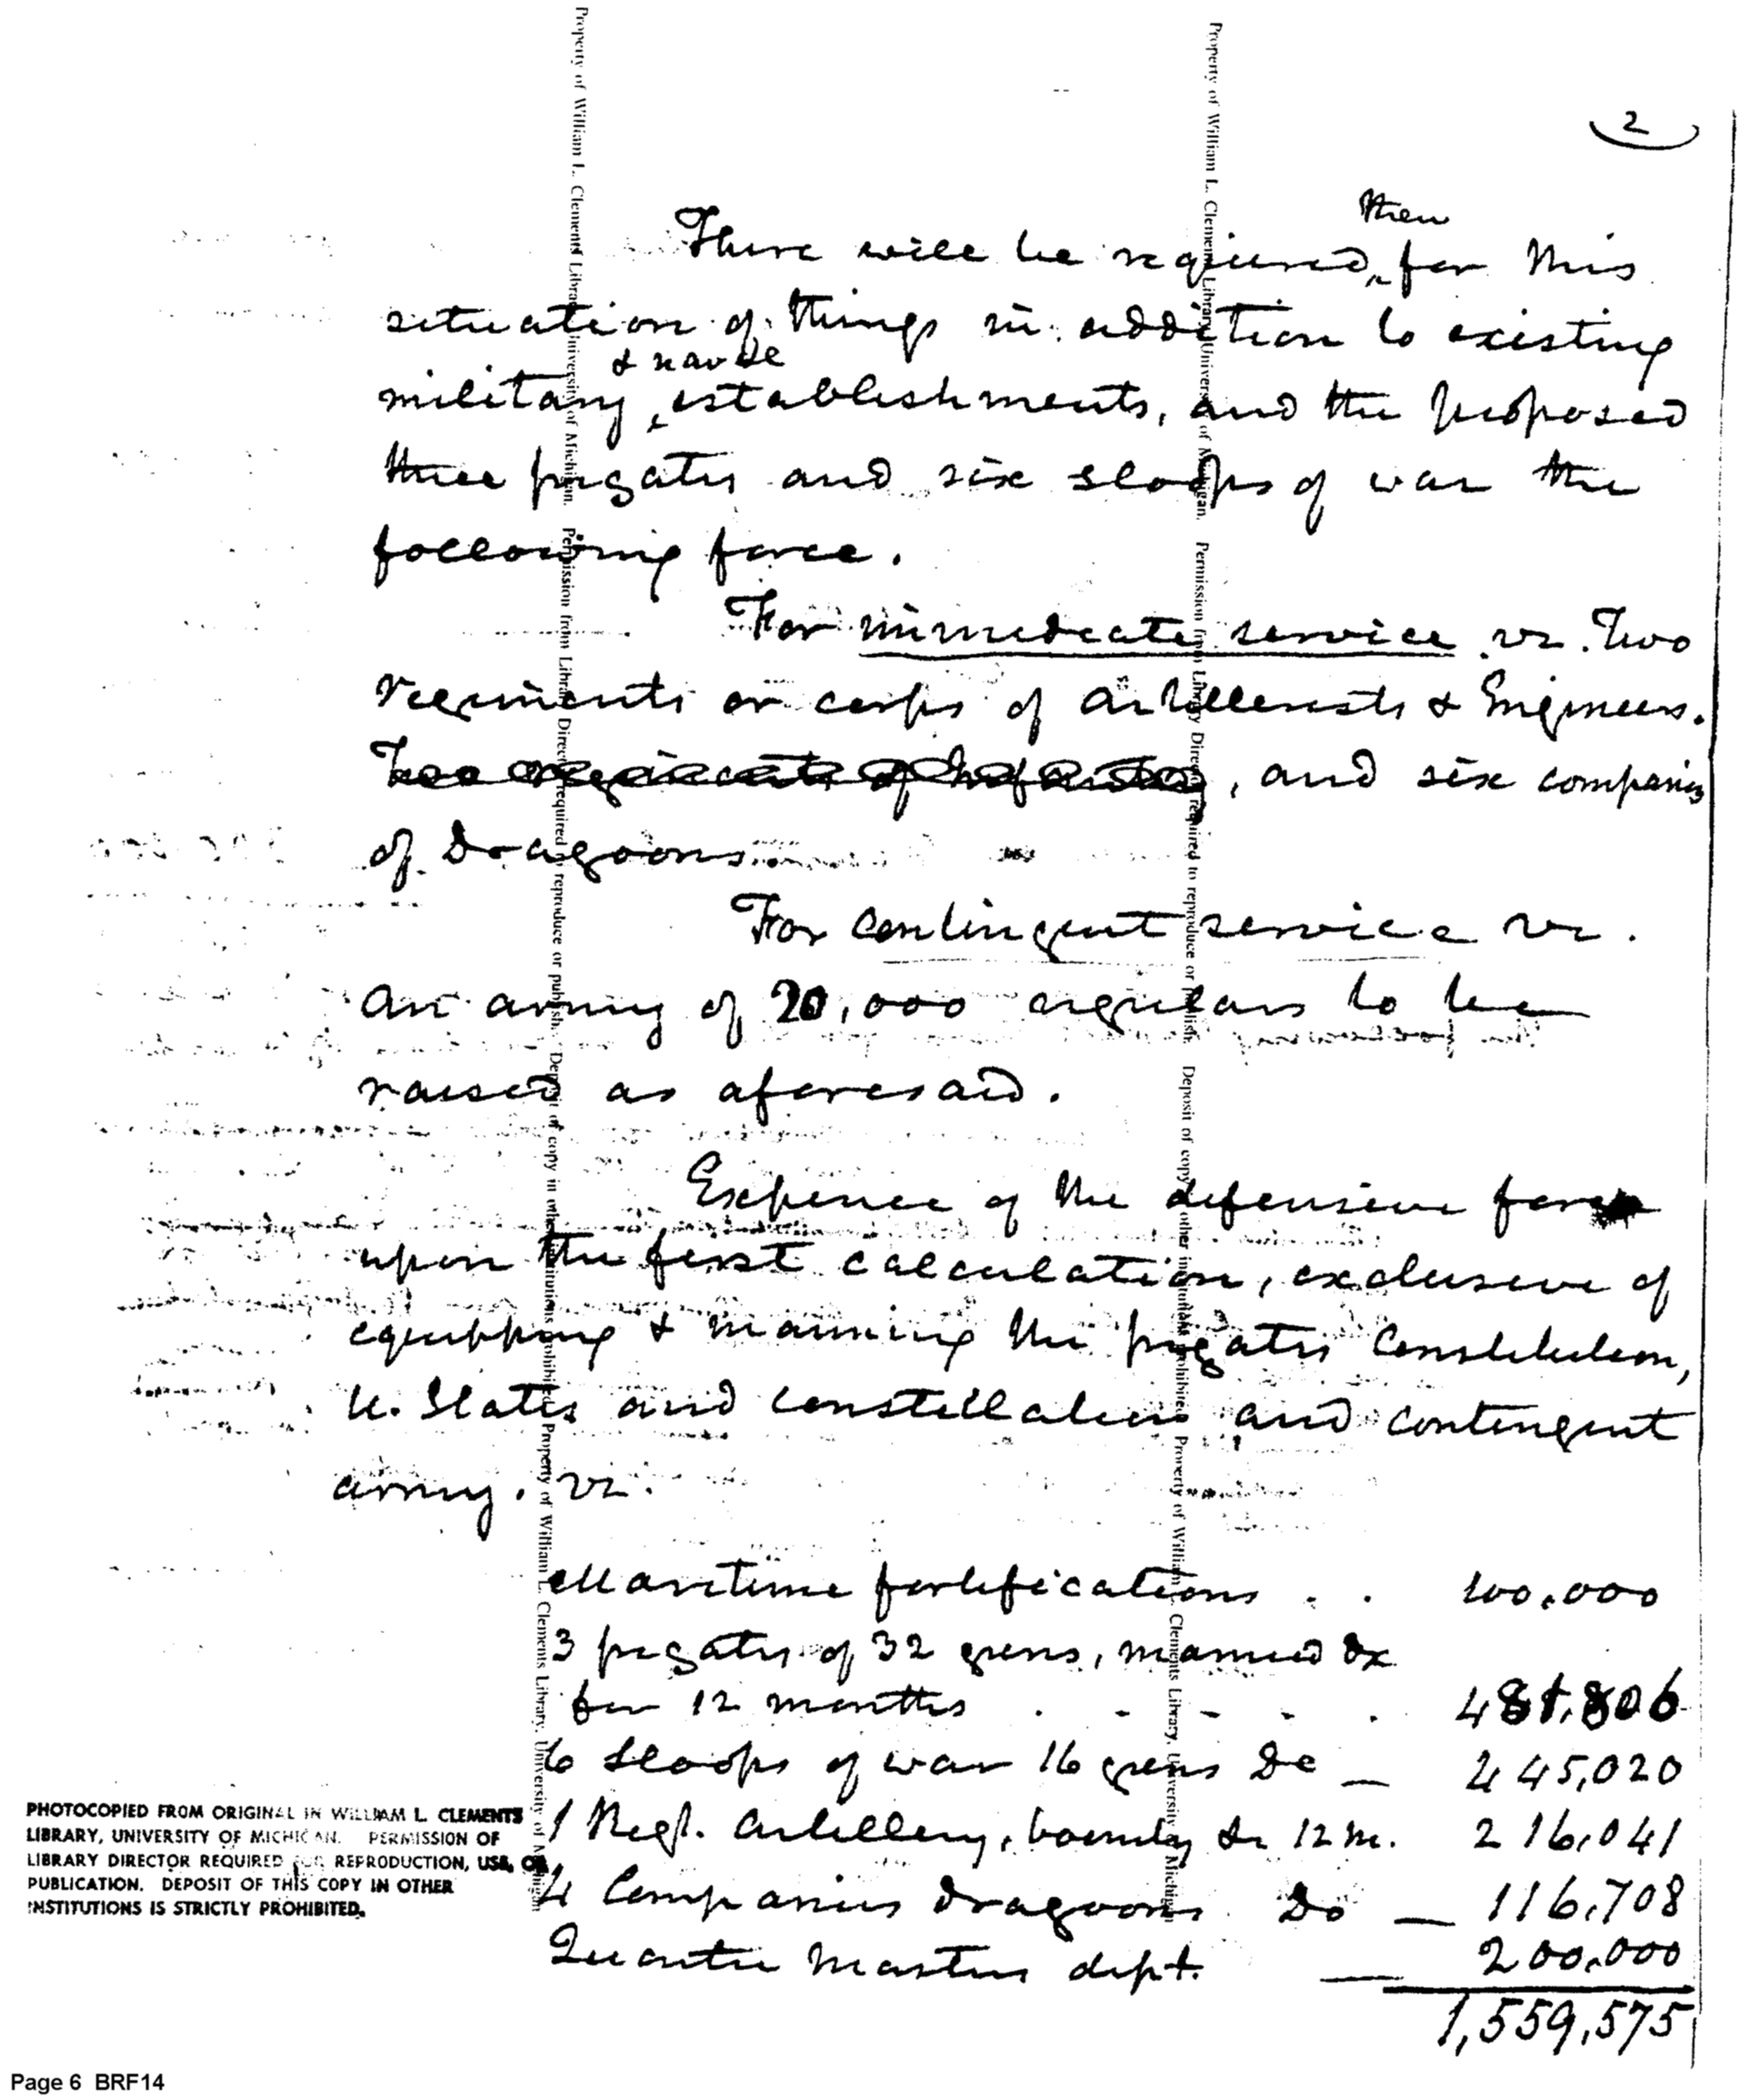 2
then
There will be required, for this
situation of things in addition to existing
& naval
military, establishments, and the proposed
three frigates and six sloops of war the
following force.
For immediate service vz. Two
regiments or corps of artillerists & Engineers.
Two regiments of Infantry, and six companies
of Dragoons.
For contingent service vz.
An army of 20,000 regulars to be
raised as aforesaid.
Expence of the defensive force
upon the first calculation, exclusive of
equipping & manning the frigates Constitution,
U. States and constellation and contingent
army. vz.
Maritime fortifications . . 100,000
3 frigates of 32 guns, manned &c
for 12 months . - - . . 481,806
6 sloops of war 16 guns Do — 445,020
1 Regt. artillery, bounty &c 12 m. 216,041
4 Companies dragoons Do — 116,708
Quarter Masters dept. — 200,000
1,559,575
Property of William L. Clements Library, University of Michigan. Permission from Library Director required to reproduce or publish. Deposit of copy in other institutions prohibited. Property of William L. Clements Library, University of Michigan
Property of William L. Clements Library, University of Michigan. Permission from Library Director required to reproduce or publish. Deposit of copy in other institutions prohibited. Property of William L. Clements Library, University of Michigan
PHOTOCOPIED FROM ORIGINAL IN WILLIAM L. CLEMENTS
LIBRARY, UNIVERSITY OF MICHIGAN. PERMISSION OF
LIBRARY DIRECTOR REQUIRED FOR REPRODUCTION, USE, OR
PUBLICATION. DEPOSIT OF THIS COPY IN OTHER
INSTITUTIONS IS STRICTLY PROHIBITED.
Page 6 BRF14